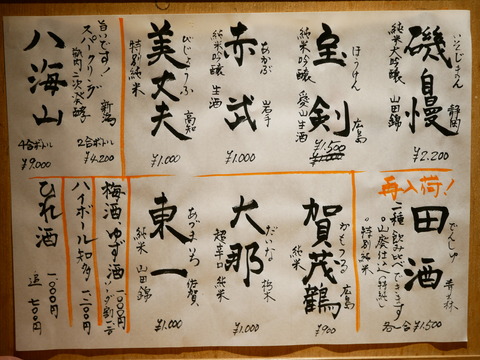 磯自慢
いそじまん
静岡
純米大吟醸 山田錦
¥2.200
宝剣
ほうけん
広島
純米吟醸 愛山生酒
¥1.500
赤武
あかぶ
岩手
純米吟醸 生酒
¥1.000
美丈夫
びじょうふ
高知
特別純米
¥1.000
旨いです!
スパークリング
瓶内二次発酵
新潟
八海山
2合ボトル
¥4.200
4合ボトル
¥9.000
再入荷!
田酒
でんしゅ
青森
二種飲み比べできます
○山廃仕込(特純)
○特別純米
各一合¥1.500
賀茂鶴
かもつる
広島
純米
¥900
大那
だいな
栃木
超辛口 純米
¥1.000
東一
あづまいち
佐賀
純米 山田錦
¥1.000
梅酒 ゆず酒 一〇〇〇円
ハイボール 知多 一二〇〇円
ひれ酒 一〇〇〇円
追 七〇〇円